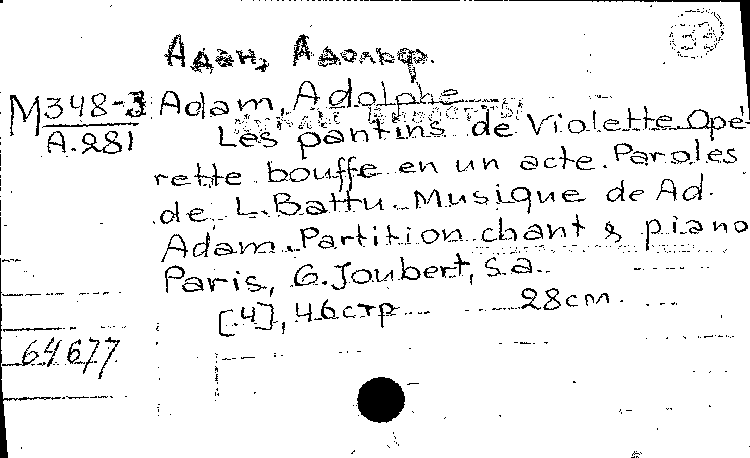 33
Адан, Адольф.
М348-3 Adam, Adolphe
А.281 Les pantins de Violette Opé
rette bouffe en un acte. Paroles
de L. Battu. Musique de Ad.
Adam. Partition chant & piano
Paris, G. Joubert, s.a.
[4], 46 стр 28 см.
64677